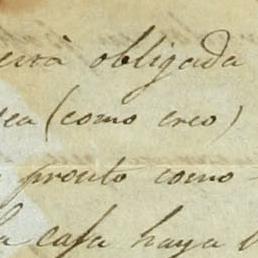 será obligada
sea (como creo)
pronto como
la casa haya